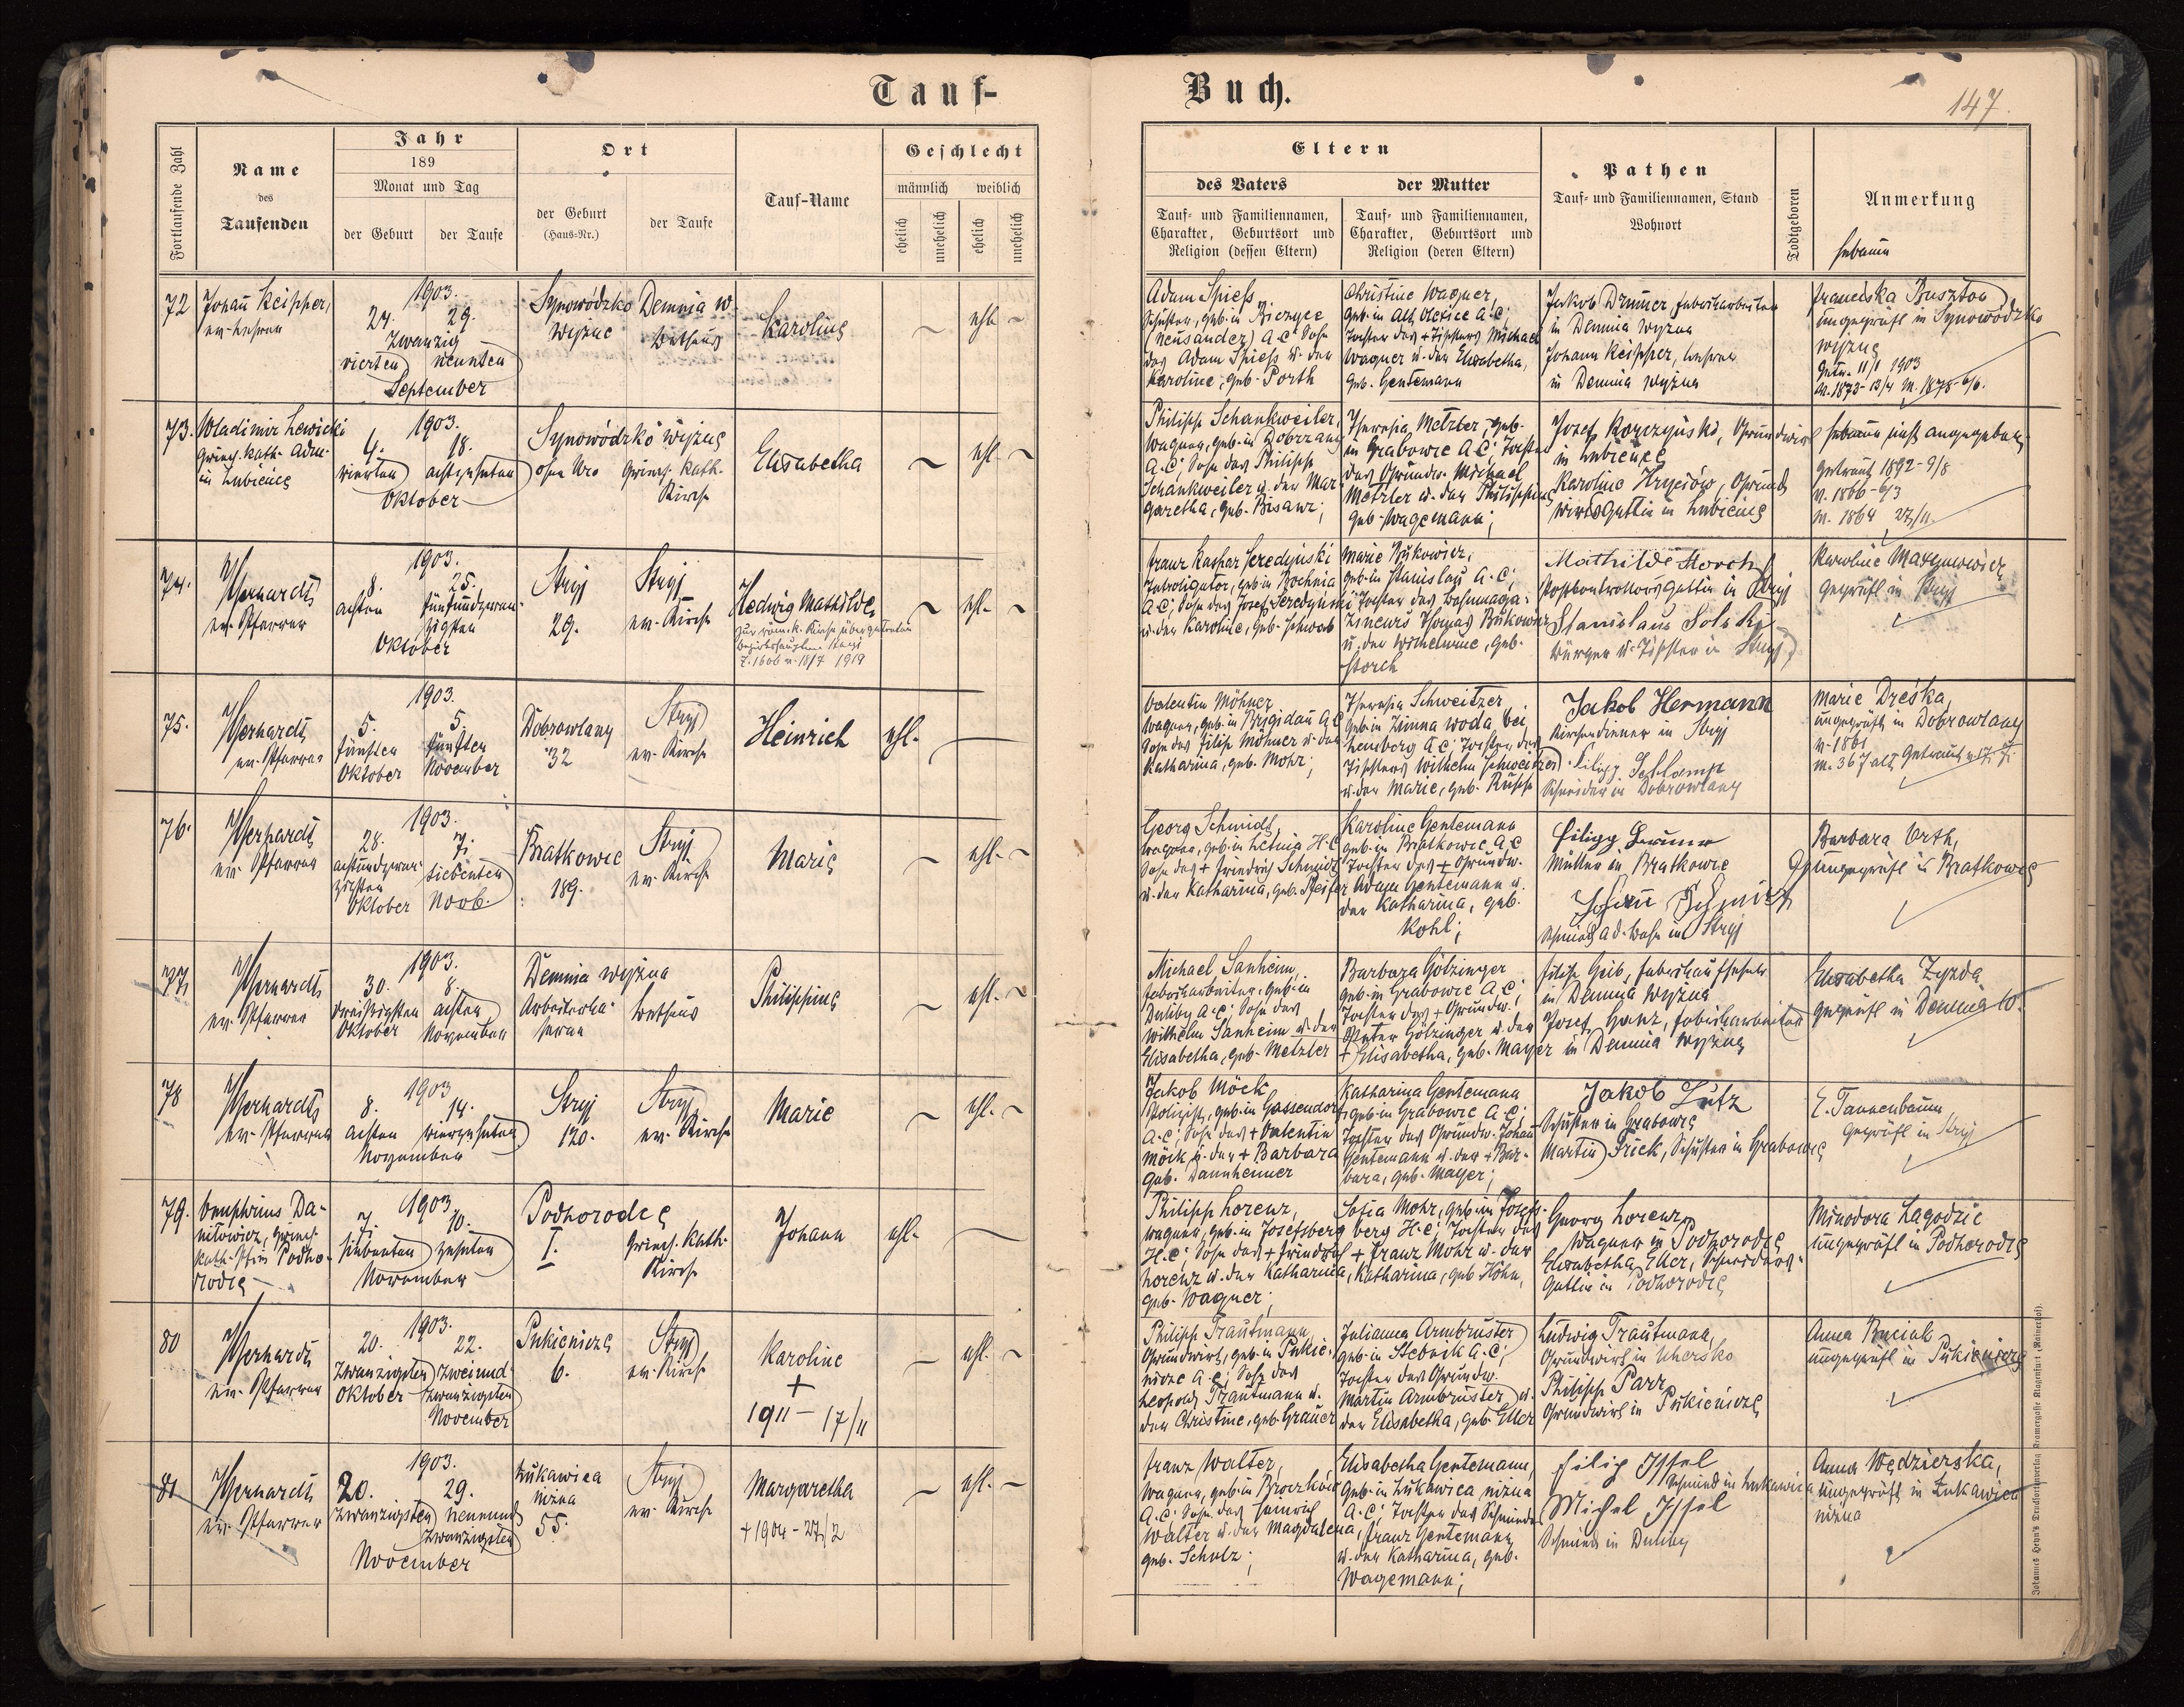 Tauf-
Buch.
147.
Fortlaufende Zahl
Name
des
Taufenden
Jahr
189
Monat und Tag
der Geburt
der Taufe
Ort
der Geburt
(Haus-Nr.)
der Taufe
Tauf-Name
Geschlecht
männlich
weiblich
ehelich
unehelich
ehelich
unehelich
Eltern
des Vaters
Tauf- und Familiennamen,
Charakter, Geburtsort und
Religion (dessen Eltern)
der Mutter
Tauf- und Familiennamen,
Charakter, Geburtsort und
Religion (deren Eltern)
Pathen
Tauf- und Familiennamen, Stand
Wohnort
Todtgeboren
Anmerkung
Hebamme
72
Johañ Keipper,
ev. Lehrer
1903.
24. 29.
Zwanzig
vierten neunten
September
Synowódzko
Wyżne
Demnia w.
Bethaus
Karoline
ehl.
Adam Spiess
Schuster, geb. in
(Neusandez) A.C. Sohn
des Adam Spiess u. der
Karoline, geb. Porth
Christine Wagner,
geb. in Alt Olexice A.C.;
Tochter des + Tischlers Michael
Wagner u. der Elisabetha,
geb. Gentemann
Jakob Drumer, Fabriksarbeiter
in Demnia Wyżna
Johann Keipper, Lehrer
in Demnia wyżna
Franciska Buszton
ungeprüft in Synowódzko
wyżne
Getr. 11/1 1903
V. 1873-12/4 M. 1878-6/6.
73.
Wladimir Lewicki
griech. kath. Adm.
in Lubience
1903.
4. 18.
vierten achtzehnten
Oktober
Synowódzko wyżne
ohne Nro
Griech. kath.
Kirche
Elisabetha
ehl.
Philipp Schankweiler,
Wagner, geb. in Dobrzany
A.C; Sohn des Philipp
Schankweiler u. der Mar
garetha, geb. Bisanz;
Theresia Metzler, geb.
in Grabowce A.C; Tochter
des Grundw. Michael
Metzler u. der Philippine
geb. Wagemann;
Josef Korczyński, Grundwirt
in Lubience
Karoline Hryciów, Grund
wirtsgattin in Lubience
Hebamme nicht angegeben
getraut 1892-9/8
V. 1866-6/3
M. 1864 27/11.
74.
ev. Pfarrer
1903.
8. 25.
achten fünfundzwan-
zigsten
Oktober
Stryj
29.
Stryj
ev. Kirche
Hedwig Mathilde,
zur röm. k. Kirche übergetreten
Bezirkshauptm. Stryj
Z. 1606 v. 18/7 1919
ehl.
Franz Kaspar Seredyński
Introligator, geb. in Bochnia
A.C; Sohn des Josef Seredyński
u. der Karoline, geb. Schwob
Marie Bukowicz,
geb. in Stanislau A.C;
Tochter des Bahnmaga-
zineurs Thomas Bukowicz
u. der Wilhelmine, geb.
Storch
Mathilde Storch
Postkontrollorsgattin in Stryj
Stanislaus Solski
Bürger u. Tischler in Stryj
Karoline Martynowicz
geprüft in Stryj
75.
ev. Pfarrer
1903.
5. 5.
fünften fünften
Oktober November
Dobrowlany
32
Stryj
ev. Kirche
Heinrich
ehl.
Valentin Möhner
Wagner, geb. in Brigidau A.C
Sohn des Filip Möhner u. der
Katharina, geb. Mohr;
Theresia Schweitzer
geb. in Zimna woda bei
Lemberg A.C; Tochter des
Tischlers Wilhelm Schweitzer
u. der Marie, geb. Rusch
Jakob Hermann
Kirchendiener in Stryj
Filipp Schlamp
Schneider in Dobrowlany
Marie Dreśka,
ungeprüft in Dobrowlany
V. 1861
M. 36 J alt
76.
ev. Pfarrer
1903.
28. 7.
achtundzwan-
zigsten siebenten
Oktober Novb.
Bratkowce
189.
Stryj
ev. Kirche
Marie
ehl.
Georg Schmidt,
Wagner, geb. in Letnia H.C
Sohn des + Friedrich Schmidt
u. der Katharina, geb. Pfeifer
Karoline Gentemann
geb. in Bratkowce A.C
Tochter des + Grundw.
Adam Gentemann u.
der Katharina, geb.
Kohl;
Müller in Bratkowce
Johann Schmidt
Schmied a d. Bahn in Stryj
Barbara Orth,
ungeprüft in Bratkowce
77
ev. Pfarrer
1903.
30. 8.
dreißigsten achten
Oktober November
Demnia wyżna
Arbeiterka-
serne
Bethaus
Philippine
ehl.
Michael Sanheim,
Fabriksarbeiter, geb. in
Duliby A.C; Sohn des
Wilhelm Sanheim u. der
Elisabetha, geb. Metzler
Barbara Götzinger
geb. in Grabowce A.C;
Tochter des + Grundw.
Peter Götzinger u. der
+ Elisabetha, geb. Mayer
Filip Geib, Fabriksaufseher
in Demnia wyżna
Josef Ganz, Fabriksarbeiter
in Demnia wyżna
Elisabetha Zyzda
geprüft in Demnia w.
78
ev. Pfarrer
1903
8. 14.
achten vierzehnten
November
Stryj
120.
Stryj
ev. Kirche
Marie
ehl.
Jakob Möck
Polizist, geb. in Gassendorf
A.C; Sohn des + Valentin
Möck u. der + Barbara
geb. Dannheimer
Katharina Gentemann
geb. in Grabowce A.C;
Tochter des Grundw. Johañ
Gentemann u. der + Bar-
bara, geb. Mayer;
Jakob Lutz
Schuster in Grabowce
Martin Frick, Schuster in Grabowce
E. Tannenbaum
geprüft in Stryj
79.
Onuphrius Da-
niłowicz, griech.
kath. Pf. in Podho-
rodce
1903
7. 10.
siebenten zehnten
November
Podhorodce
I.
Griech. kath.
Kirche
Johann
ehl.
Philipp Lorenz,
Wagner, geb. in Josefsberg
H.C; Sohn des + Friedrich
Lorenz u. der Katharina,
geb. Wagner;
Sofia Mohr, geb. in Josefs-
berg H.C; Tochter des
+ Franz Mohr u. der
Katharina, geb Höhn,
Georg Lorenz,
Wagner in Podhorodce
Elisabetha Eller, Schneiders-
Gattin in Podhorodce
Minodora Łagodzic
ungeprüft in Podhorodce
80
ev. Pfarrer
1903.
20. 22.
Zwanzigsten zweiund-
Oktober zwanzigsten
November
Pukienicze
6.
Stryj
ev. Kirche
Karoline
+
1911 - 17/11
ehl.
Philipp Trautmann,
Grundwirt, geb. in Pukie-
nicze A.C; Sohn des
Leopold Trautmann u.
der Christine, geb. Grauer
Julianna Armbruster
geb. in Stebnik A.C;
Tochter des Grundw.
Martin Armbruster u.
der Elisabetha, geb. Eller
Ludwig Trautmann,
Grundwirt in Uhersko
Philipp Parr
Grundwirt in Pukienicze
Anna Buciak
ungeprüft in Pukienicze
81
ev. Pfarrer
1903.
20. 29.
zwanzigsten neunund
zwanzigsten
November
Łukawica
niżna
55.
Stryj
ev. Kirche
Margaretha
+ 1904 - 27/2
ehl.
Franz Walter,
Wagner, geb. in Broczków
A.C; Sohn des Heinrich
Walter u. der Magdalena,
geb. Schulz;
Elisabetha Gentemann,
geb. in Łukawica niżna
A.C; Tochter des Schmiedes
Franz Gentemann
u. der Katharina, geb.
Wagemann;
Filip Issel
Schmied in Łukawica
Michel Issel
Schmied in Duliby
Anna Wędzierska,
ungeprüft in Łukawica
niżna
Johannes Heyn's Druksortenverlag Kramergasse Klagenfurt (Mainerhof).